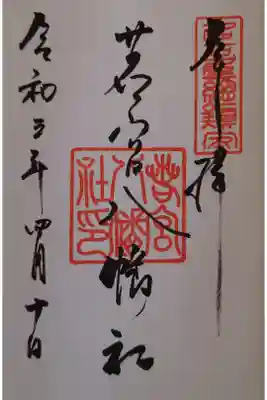 奉拝
若宮八幡社
若宮八幡社印
令和三年四月十日